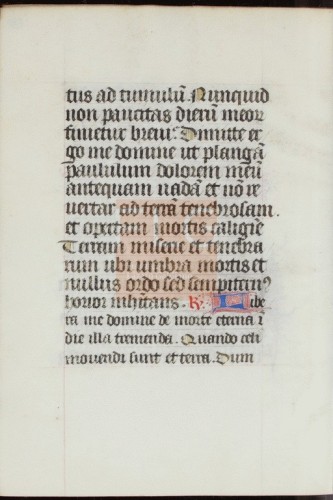 tus ad tumulũ Nunquid
non paucitas dierũ meoꝝ
finietur brevi: Dimitte er
go me domine ut plangã
paululum dolorem meũ
antequam vadã et nõ re
vertar ad terrã tenebrosam.
et opertam mortis caligĩe
Terram miserie et tenebra
rum ubi umbra mortis et
nullus ordo sed sempitern⁹
horror inhitans. R̷. Libe
ra me domine de morte eterna ĩ
die illa tremenda. Quando celi
movendi sunt et terra. Dum